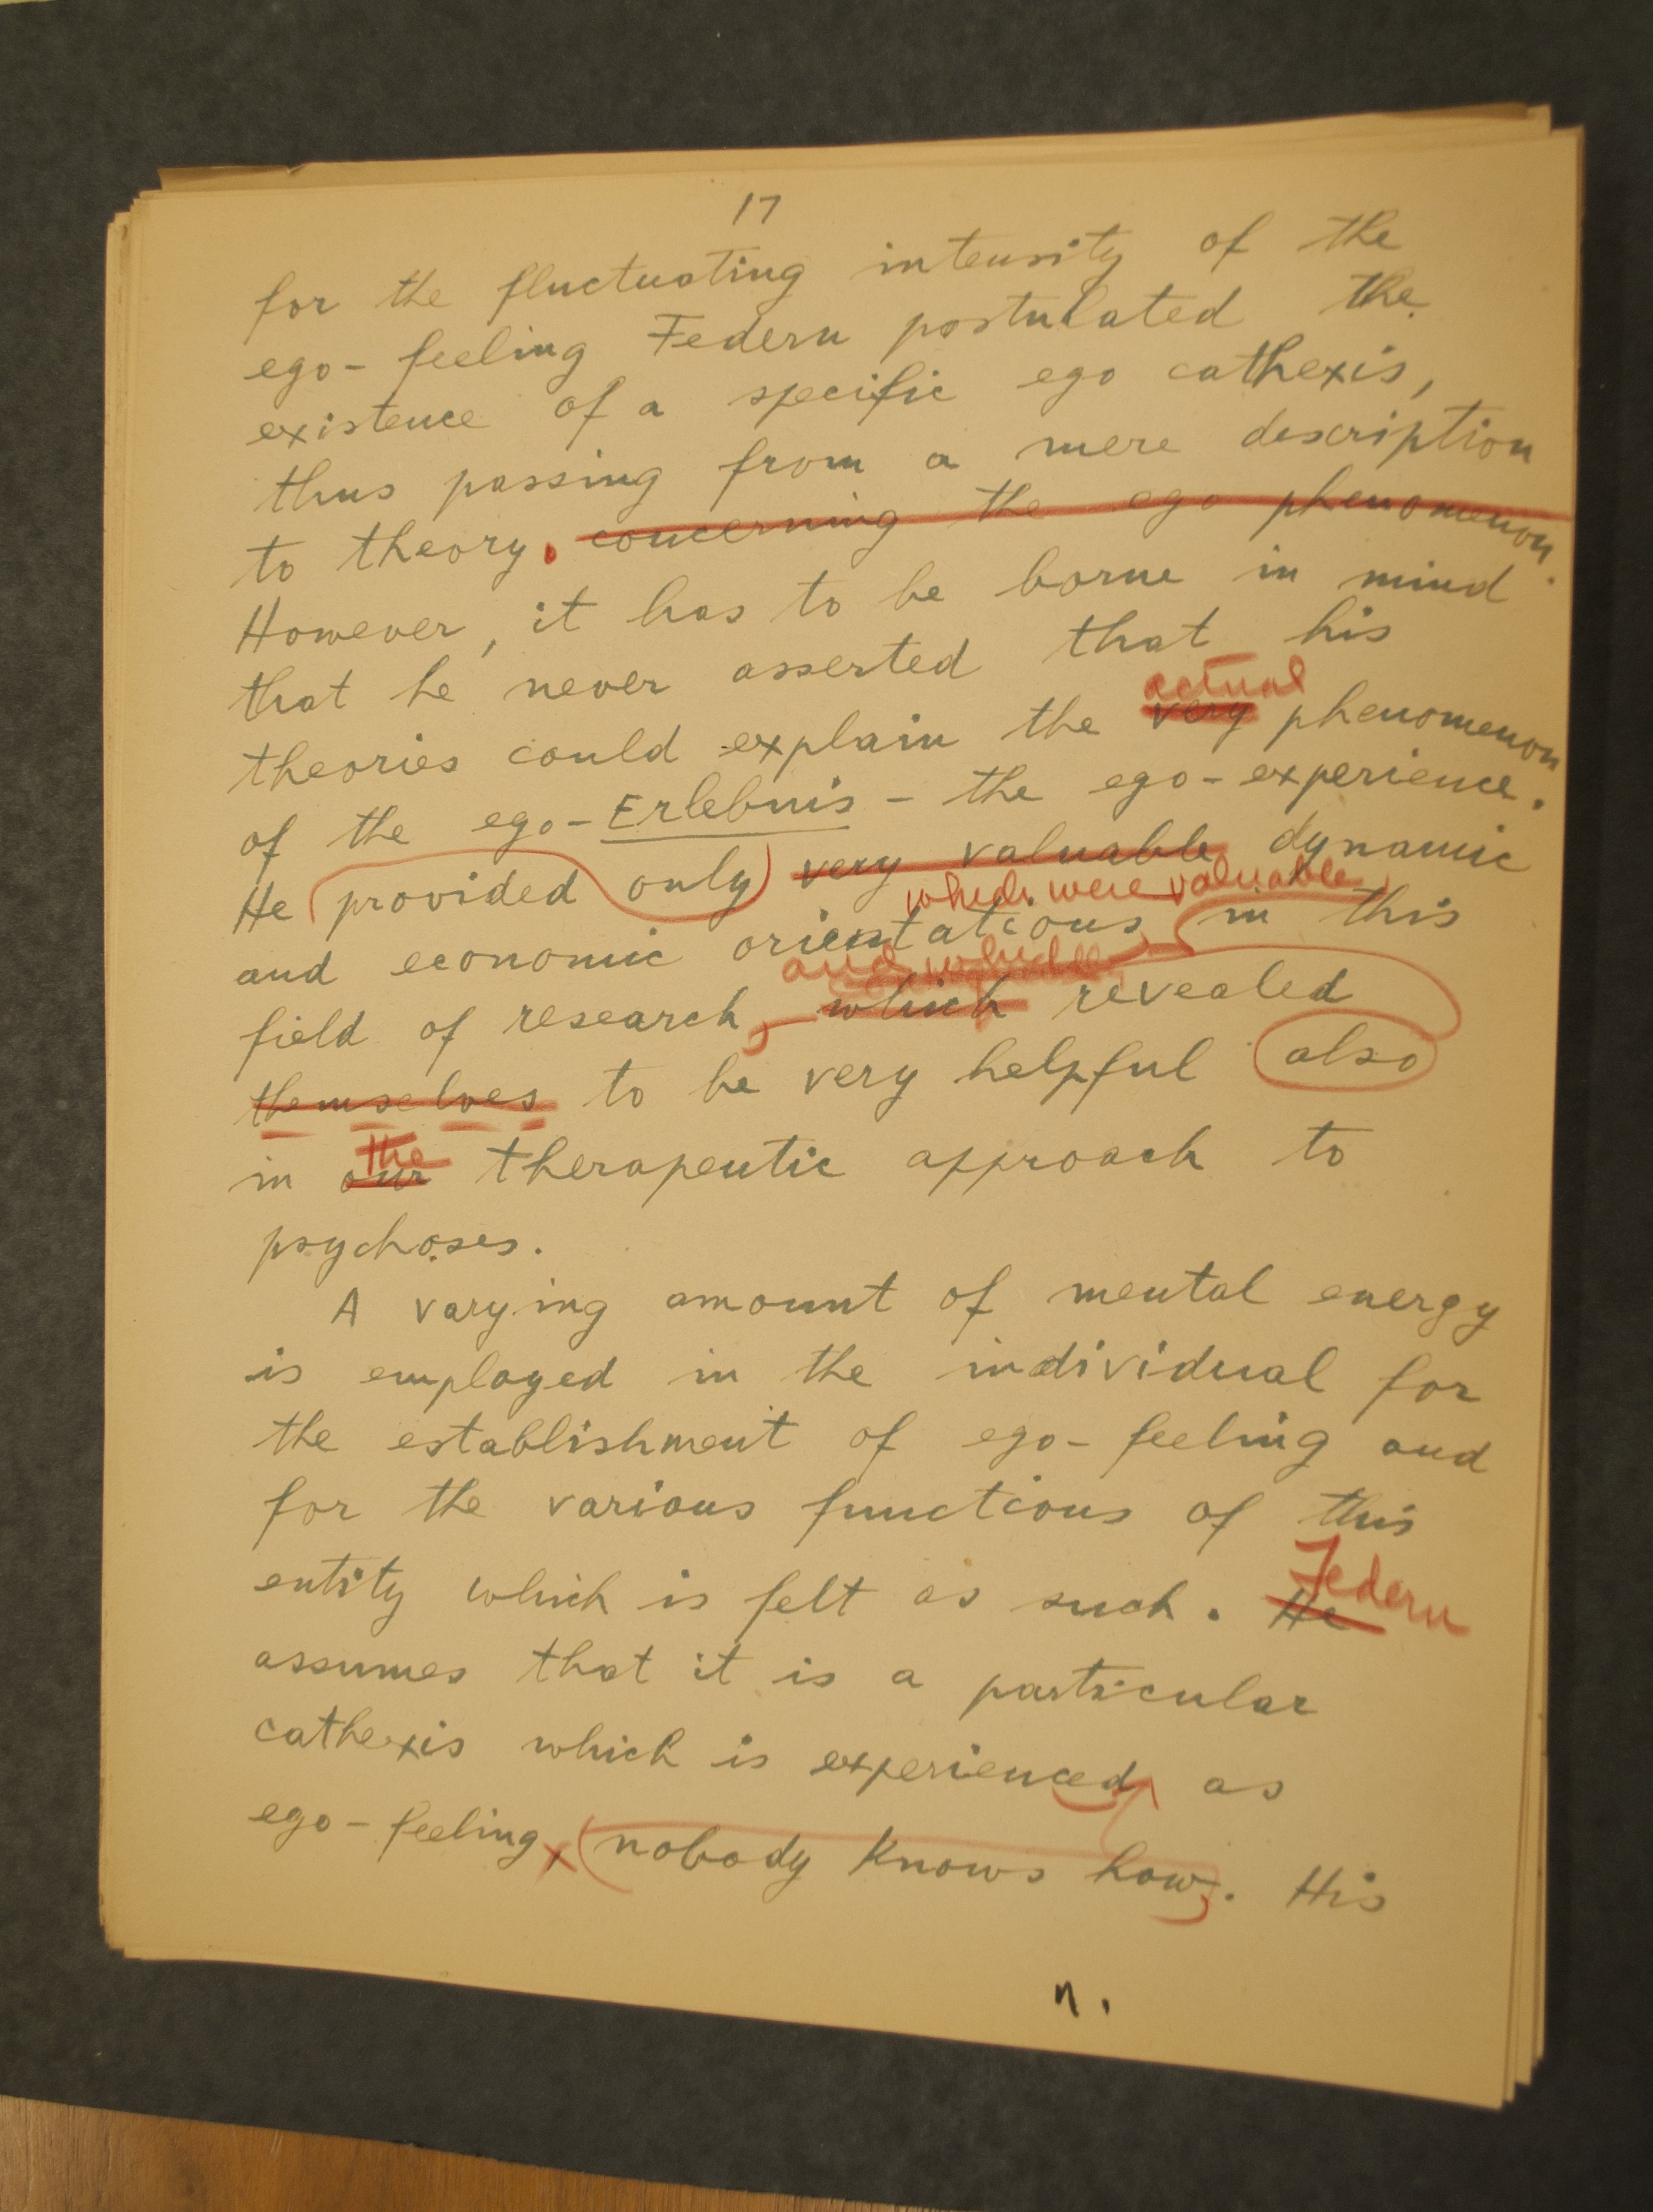 17
for the fluctuating intensity of the
ego-feeling Federn postulated the
existence of a specific ego cathexis,
thus passing from a mere description
to theory. concerning the ego phenomenon.
However, it has to be borne in mind
that he never asserted that his
actual
theories could explain the very phenomenon
of the ego-Erlebnis - the ego-experience.
He provided only very valuable dynamic
which were valuable
and economic orientations in this
and which
field of research, which revealed
themselves to be very helpful also
the
in our therapeutic approach to
psychoses.
A varying amount of mental energy
is employed in the individual for
the establishment of ego-feeling and
for the various functions of this
Federn
entity which is felt as such. He
assumes that it is a particular
cathexis which is experienced as
ego-feeling, nobody knows how. His
n.